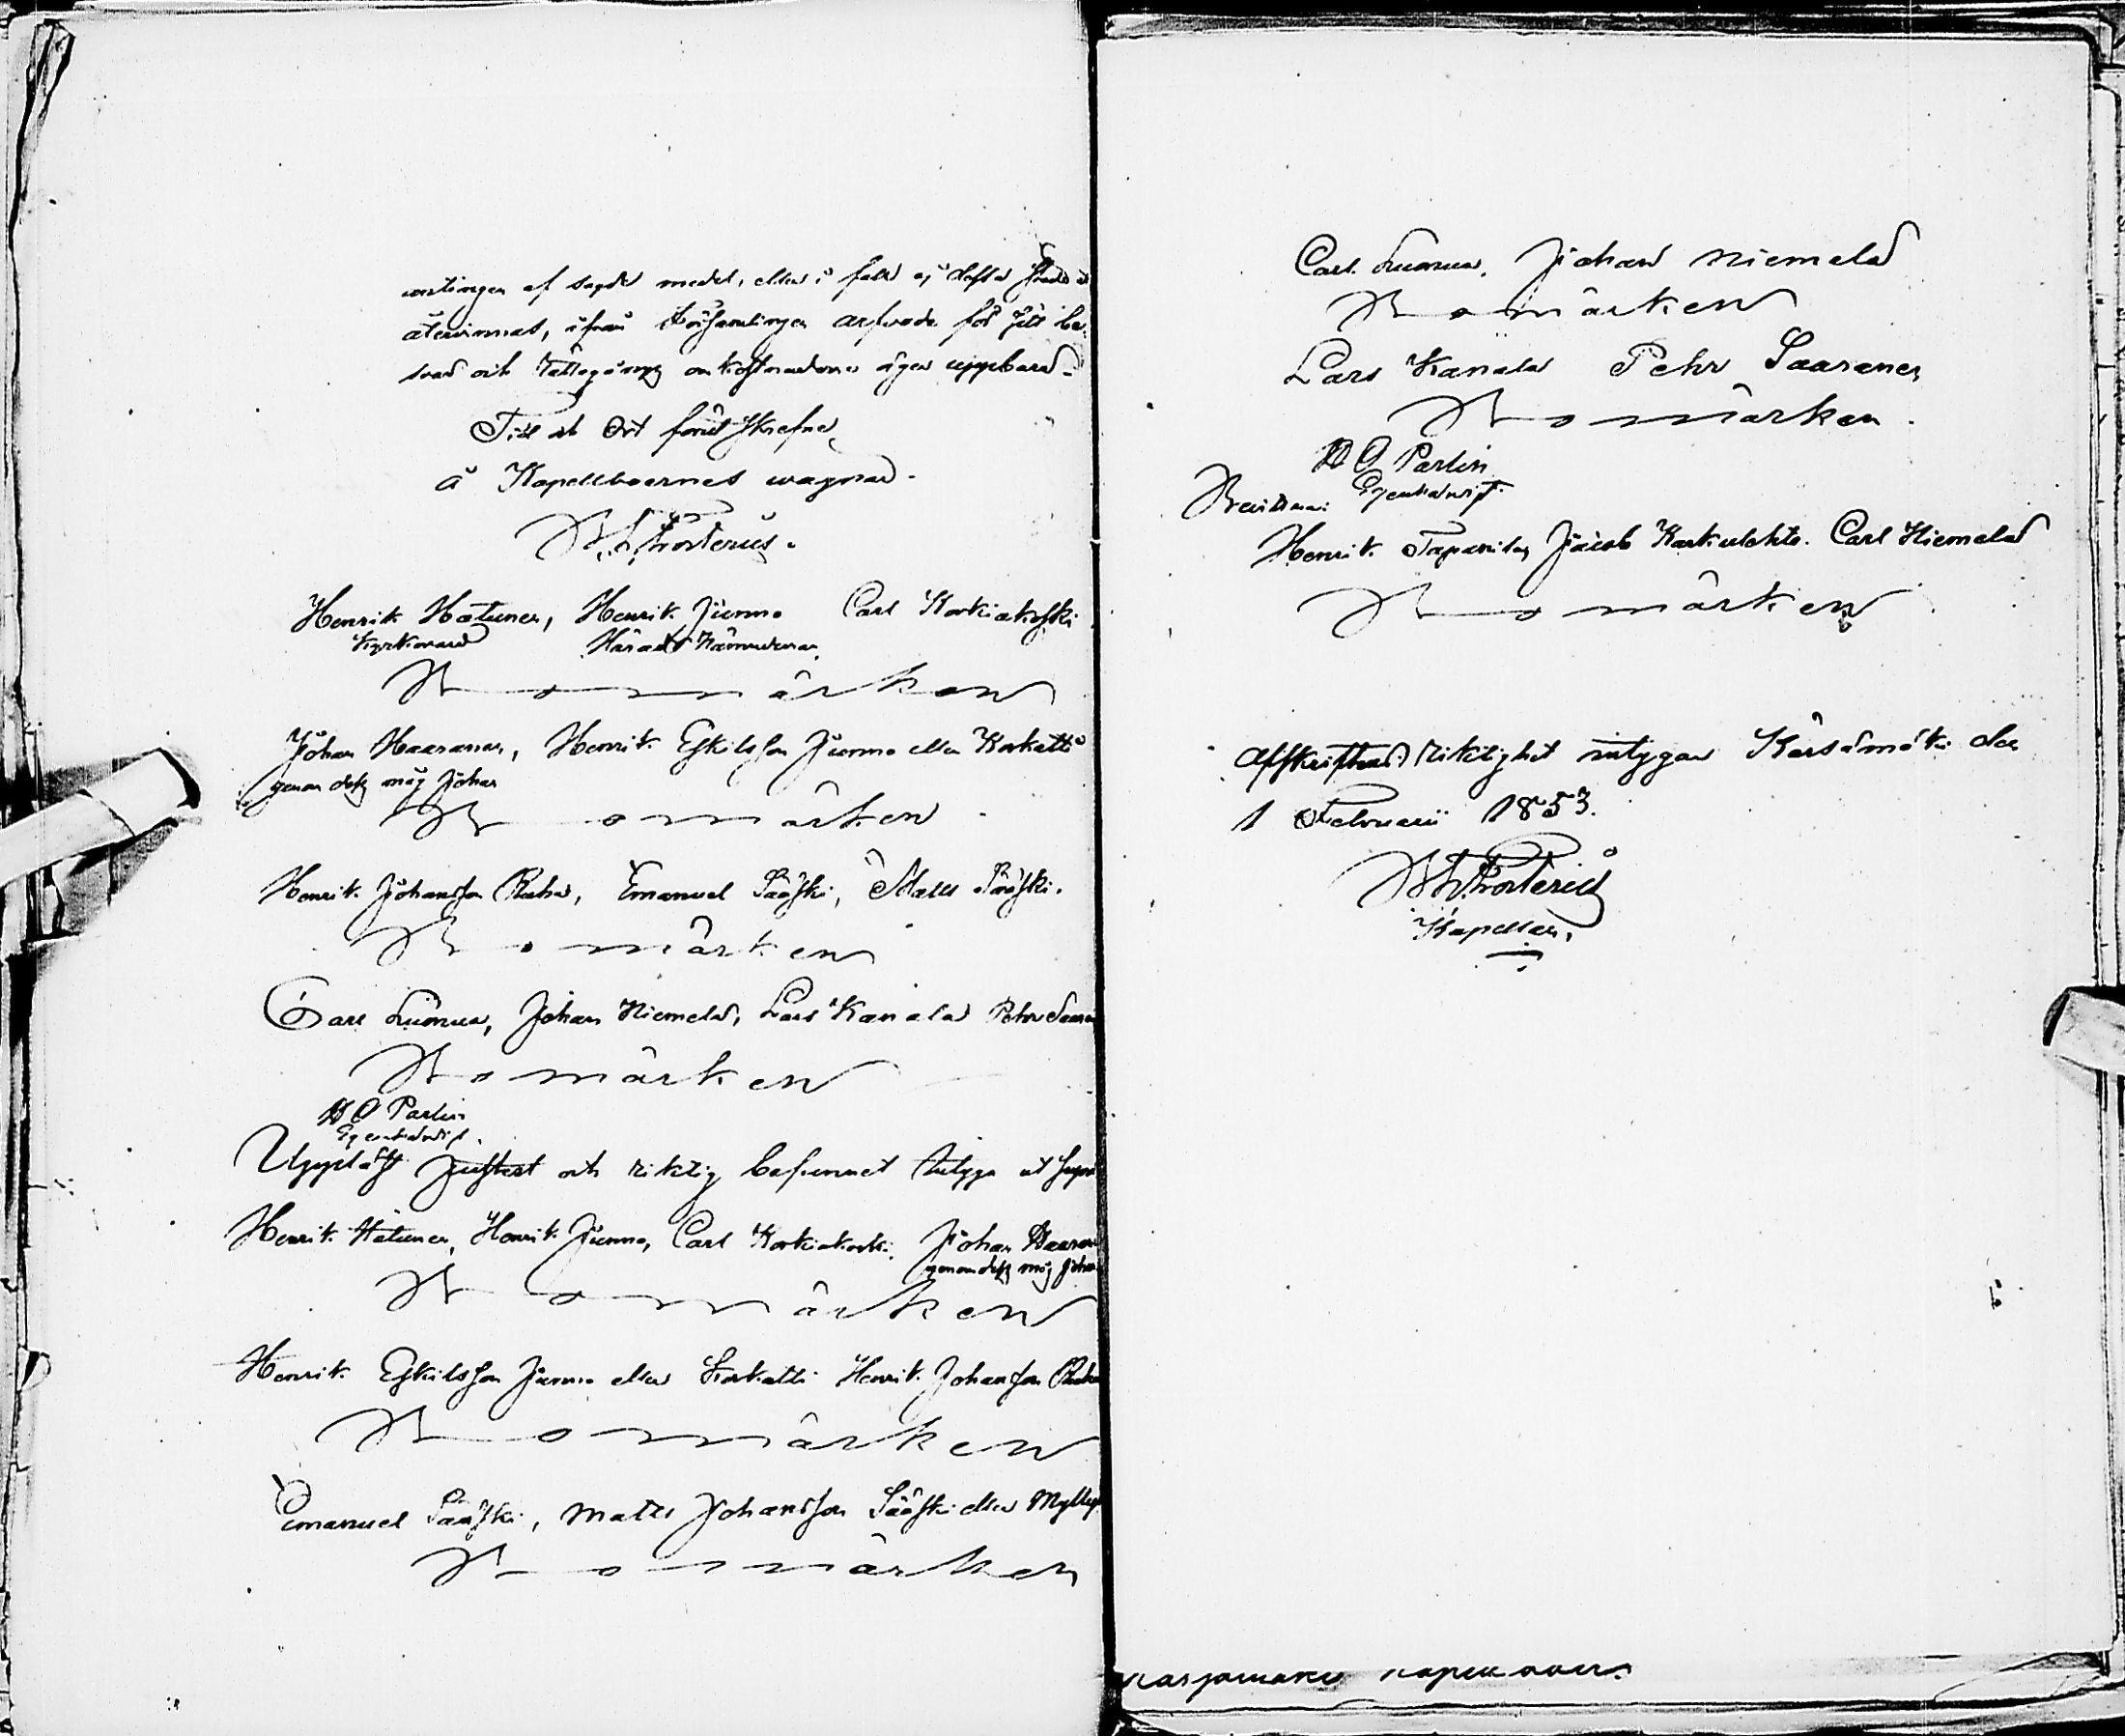 antingen af sagde medel, eller i fall ej dessa
återvinnas, ifrån Församlingen arfvode för sitt be-
svär och Rättegångs omkostnaderne äger uppbära.
Tid och Ort förut skrefne
å Kapellboernes wägnar.
Prosterus.
Henrik Hätunen, Henrik Junno Carl Korkiakoski
Kyrkovärd Härads Nämndeman
Bomärken
Johan Haaranen, Henrik Eskilsson Junno eller Korkatti
genom dess måg Johan
Bomärken
Henrik Johansson Ruha, Emanuel Sääski, Matts Sääski.
Bomärken
Carl Luomua, Johan Niemelä, Lars Kanala Pehr Saara
Bomärken
H O Parlin
Egenhändigt.
Uppläst justerat och riktig befunnet intyga
Henrik Hätunen, Henrik Junno, Carl Korkiakoski, Johan Haaran
genom dess måg Joha
Bomärken
Henrik Eskilsson Junno eller Korkatti Henrik Johansson Ruha
Bomärken
Emanuel Sääski, Matts Johansson Sääski eller Mylly
Bomärken
Carl Luomua, Johan Niemelä
Bomärken
Lars Kanala Pehr Saaranen
Bomärken.
H O Parlin
Egenhändigt.
Bevittna:
Henrik Tapanila, Jacob Karkulahto. Carl Niemelä
Bomärken
Afskriftens riktighet intygar Kärsämäki den
1 Februarii 1853.
Prosterus
Kapellan.